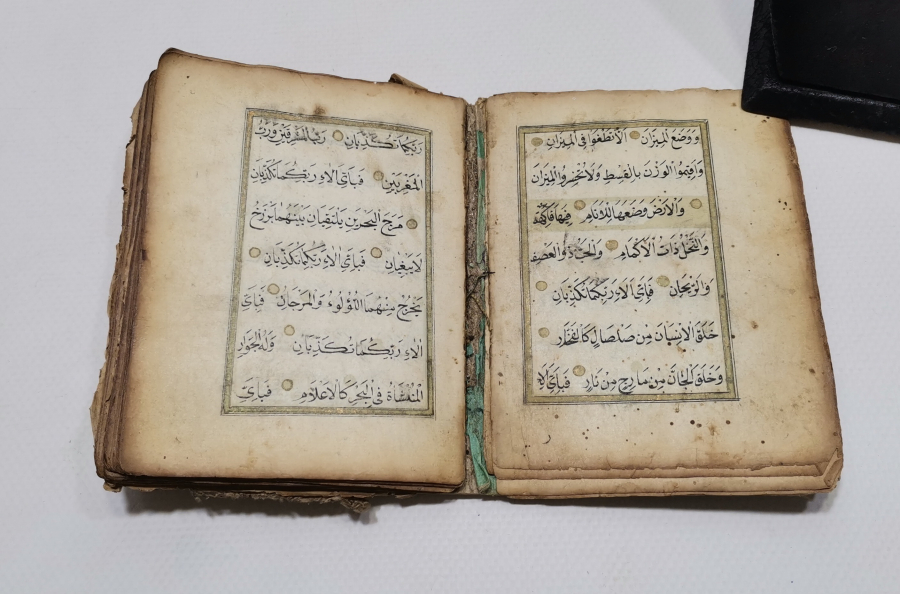 وَوَضَعَ الْمِيزَانَ ۝ اَلَّا تَطْغَوْا فِي الْمِيزَانِ ۝
وَاَقِيمُوا الْوَزْنَ بِالْقِسْطِ وَلَا تُخْسِرُوا الْمِيزَانَ
۝ وَالْاَرْضَ وَضَعَهَا لِلْاَنَامِ ۝ فِيهَا فَاكِهَةٌ
وَالنَّخْلُ ذَاتُ الْاَكْمَامِ ۝ وَالْحَبُّ ذُو الْعَصْفِ
وَالرَّيْحَانُ ۝ فَبِاَيِّ اٰلَاءِ رَبِّكُمَا تُكَذِّبَانِ ۝
خَلَقَ الْاِنْسَانَ مِنْ صَلْصَالٍ كَالْفَخَّارِ ۝
وَخَلَقَ الْجَانَّ مِنْ مَارِجٍ مِنْ نَارٍ ۝ فَبِاَيِّ اٰلَاءِ
رَبِّكُمَا تُكَذِّبَانِ ۝ رَبُّ الْمَشْرِقَيْنِ وَرَبُّ
الْمَغْرِبَيْنِ ۝ فَبِاَيِّ اٰلَاءِ رَبِّكُمَا تُكَذِّبَانِ
۝ مَرَجَ الْبَحْرَيْنِ يَلْتَقِيَانِ بَيْنَهُمَا بَرْزَخٌ
لَا يَبْغِيَانِ ۝ فَبِاَيِّ اٰلَاءِ رَبِّكُمَا تُكَذِّبَانِ ۝
يَخْرُجُ مِنْهُمَا اللُّؤْلُؤُ وَالْمَرْجَانُ ۝ فَبِاَيِّ
اٰلَاءِ رَبِّكُمَا تُكَذِّبَانِ ۝ وَلَهُ الْجَوَارِ
الْمُنْشَاٰتُ فِي الْبَحْرِ كَالْاَعْلَامِ ۝ فَبِاَيِّ